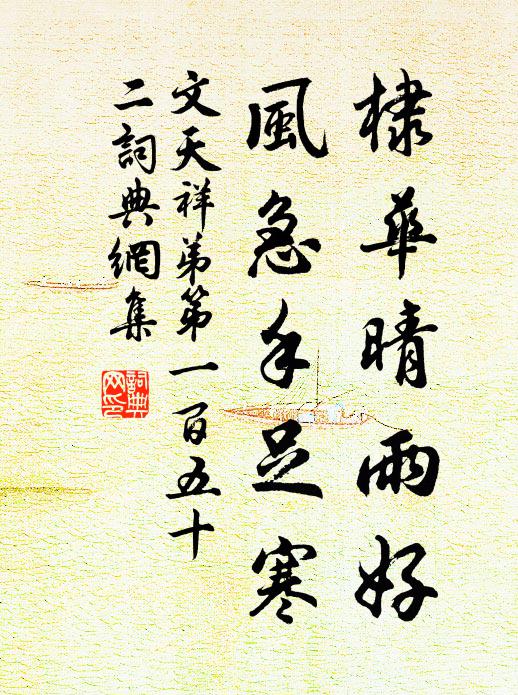 棣華晴雨好
風急手足寒
文天祥弟第一百五十
二詞典網集
詞典
网印